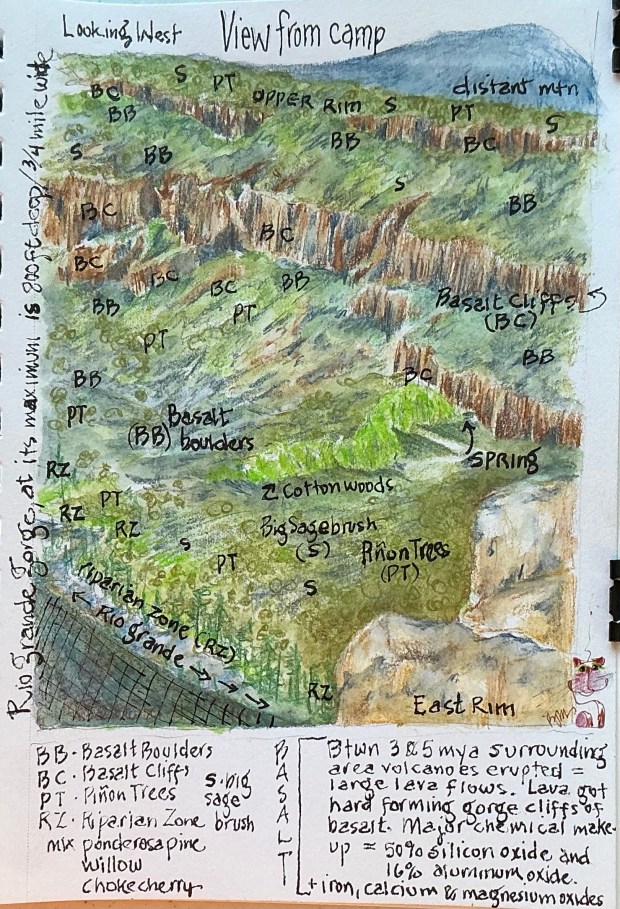 Looking West
View from camp
Rio Grande Gorge, at its maximum is 800 ft deep / 3/4 mile wide
distant mtn
S
PT
BC
UPPER Rim
S
PT
BB
S
BB
BC
S
BB
S
BB
BC
BC
BC
BC
BC
BB
BB
PT
Basalt Cliffs
(BC)
PT
BB
BB
BC
PT
Basalt
(BB) boulders
SPRING
RZ
Cottonwoods
PT
RZ
RZ
Big Sagebrush
(S)
S
Piñon Trees
(PT)
PT
S
riparian zone (RZ)
Rio grande
RZ
East Rim
BB · Basalt Boulders
BC · Basalt Cliffs
PT · Piñon Trees
S · big
sage
brush
RZ · Riparian Zone
mix ponderosa pine
willow
chokecherry
BASALT
Btwn 3 & 5 mya surrounding
area volcanoes erupted =
large lava flows. Lava got
hard forming gorge cliffs of
basalt. Major chemical make-
up = 50% silicon oxide and
16% aluminum oxide.
+ iron, calcium & magnesium oxides